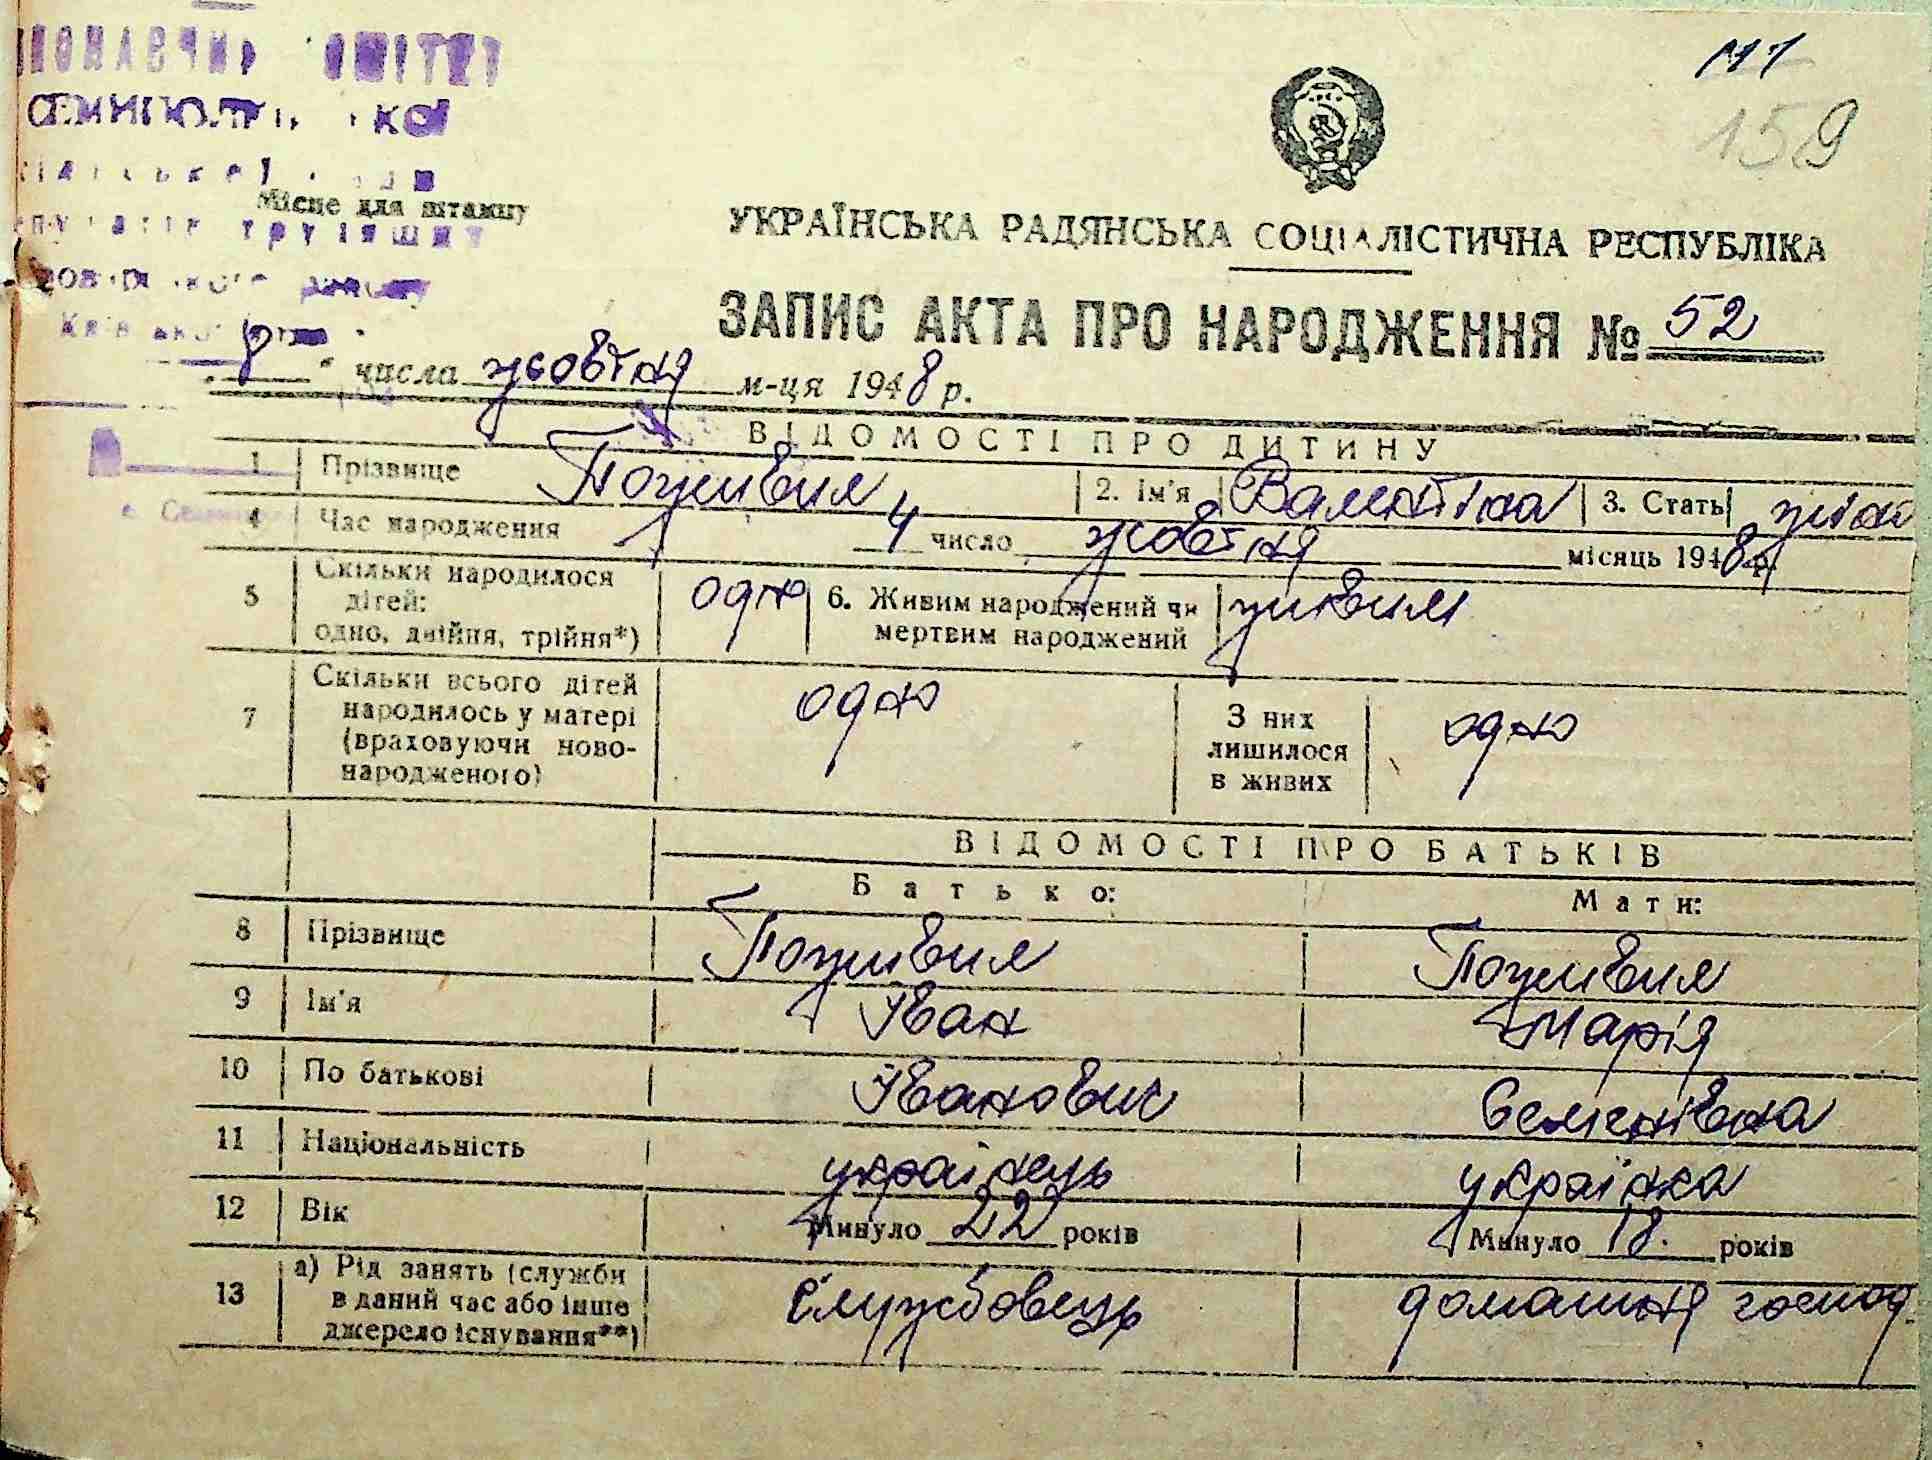 СЕМИПОЛКІВСЬКОЇ
Місце для штампу
159
УКРАЇНСЬКА РАДЯНСЬКА СОЦІАЛІСТИЧНА РЕСПУБЛІКА
ЗАПИС АКТА ПРО НАРОДЖЕННЯ № 52
8 числа жовтня м-ця 1948 р.
ВІДОМОСТІ ПРО ДИТИНУ
1 Прізвище Поживил 2. Ім'я Валентіна 3. Стать жіно
4 Час народження 4 число жовтня місяць 1948 р.
5 Скільки народилося дітей: одно, двійня, трійня*) одно 6. Живим народжений чи мертвим народжений живим
7 Скільки всього дітей народилось у матері (враховуючи ново-народженого) одно З них лишилося в живих одно
ВІДОМОСТІ ПРО БАТЬКІВ
Батько: Мати:
8 Прізвище Поживил Поживил
9 Ім'я Іван Марія
10 По батькові Іванович Семенівна
11 Національність українець українка
12 Вік Минуло 22 років Минуло 18. років
13 а) Рід занять (служби в даний час або інше джерело існування**) Службовець домашня господ.